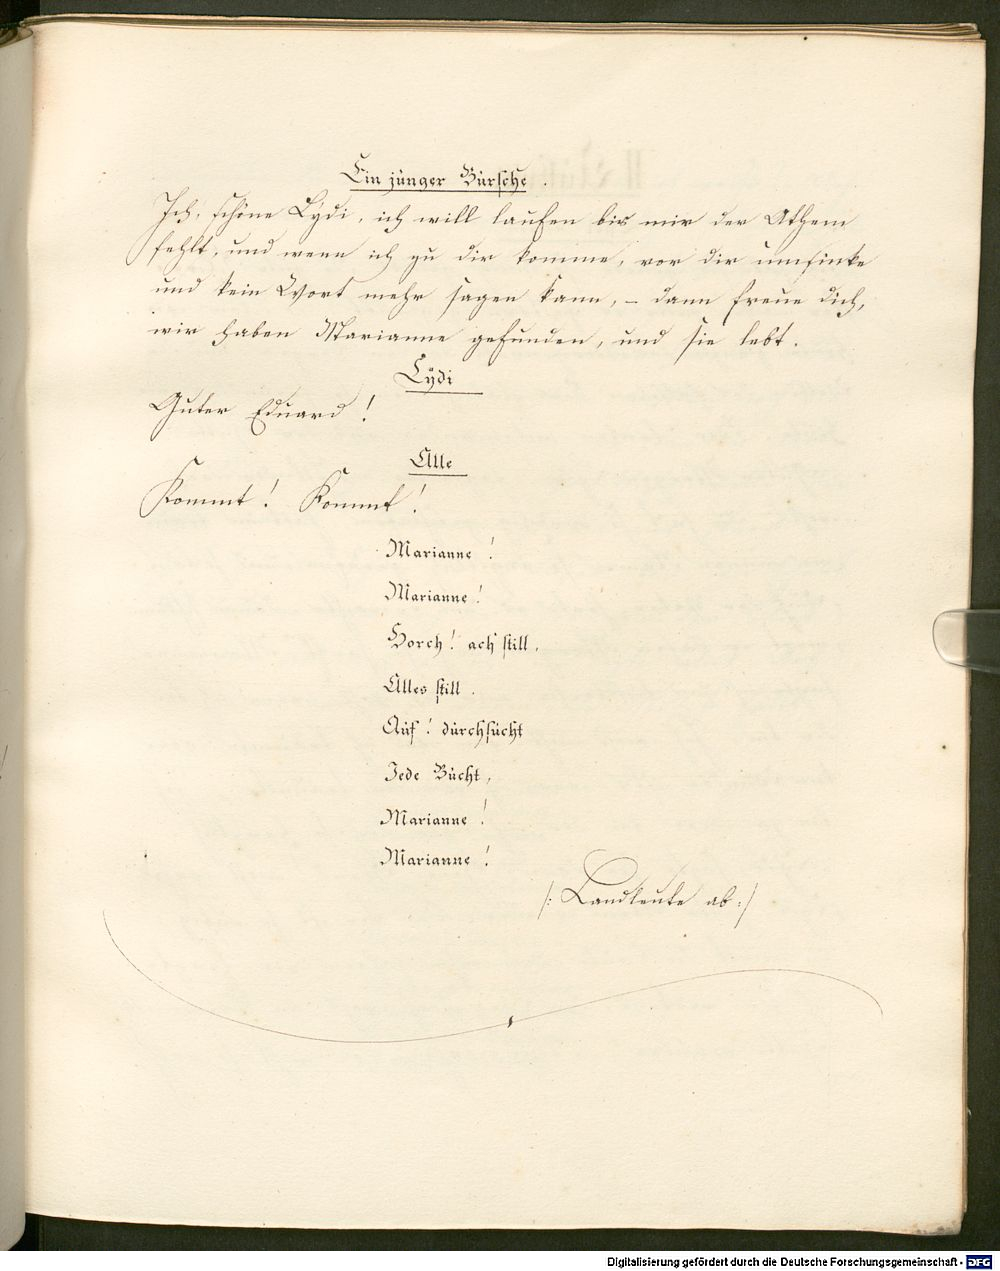 Ein junger Bursche.
Ich, schöne Lydi, ich will laufen bis mir der Athem
fehlt, und wenn ich zu dir komme, vor dir umsinke
und kein Wort mehr sagen kann, – dann freue dich,
wir haben Marianne gefunden, und sie lebt.
Lÿdi
Guter Eduard!
Alle
Kommt! Kommt!
Marianne!
Marianne!
Horch! ach still,
Alles still.
Auf! durchsucht
Jede Bucht,
Marianne!
Marianne!
/: Landleute ab :/
Digitalisierung gefördert durch die Deutsche Forschungsgemeinschaft - DFG